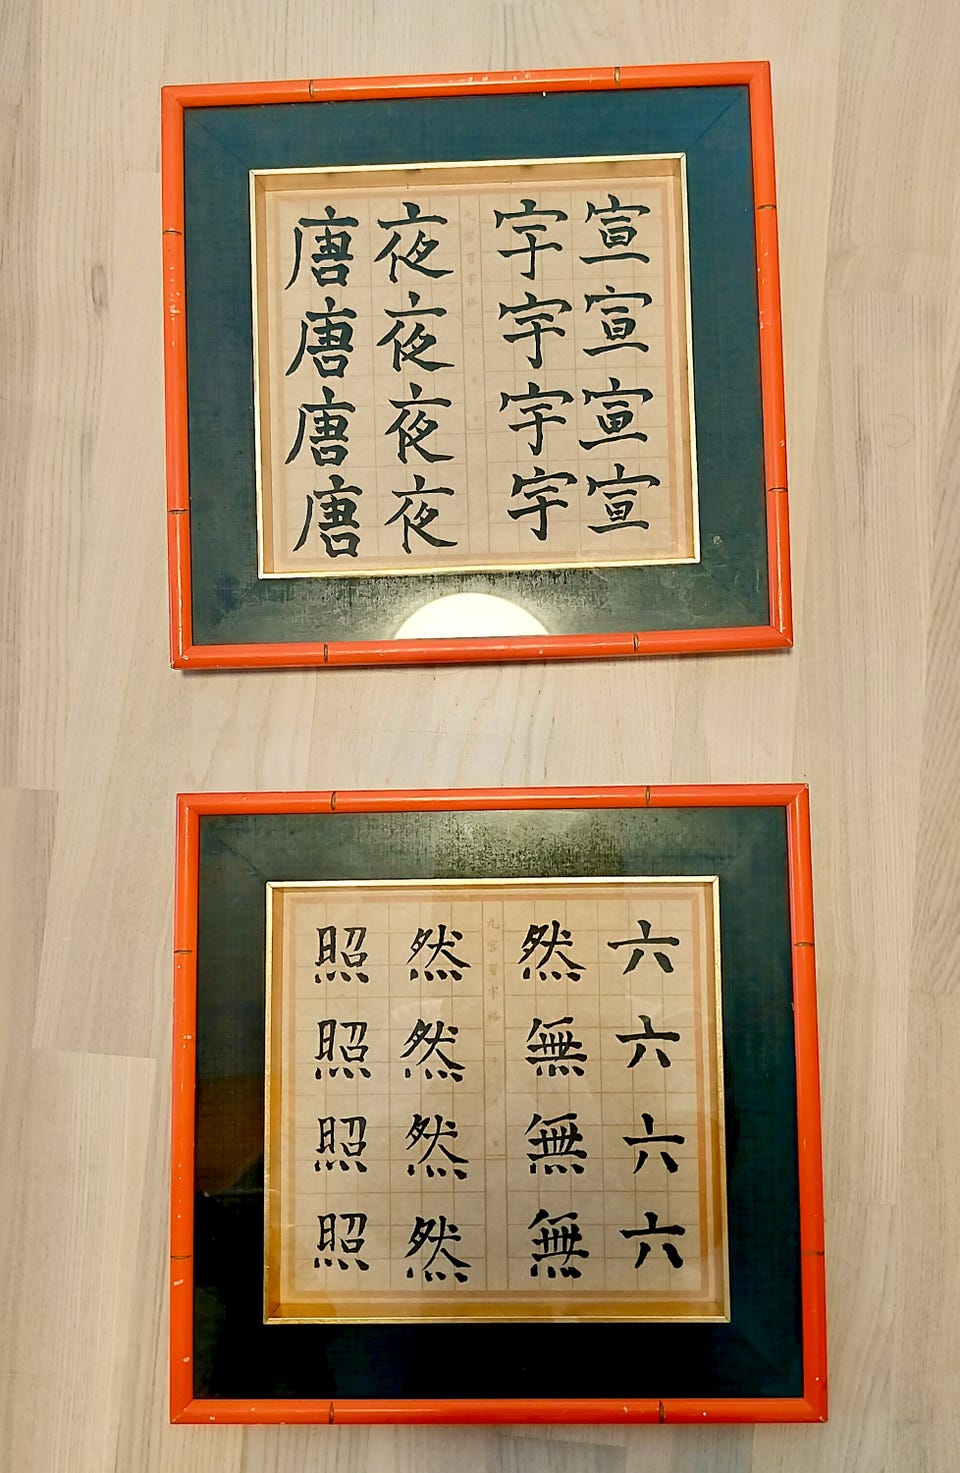 宣宣宣宣
宇宇宇宇
九宮習字格
夜夜夜夜
唐唐唐唐
六六六六
然無無無
九宮習字格
然然然然
照照照照